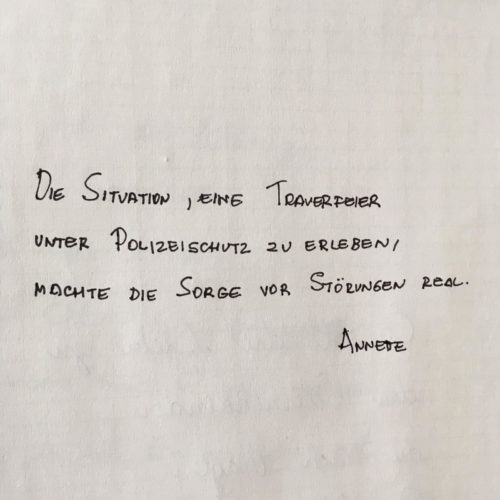 Die Situation, eine Trauerfeier
unter Polizeischutz zu erleben,
machte die Sorge vor Störungen real.
Annete